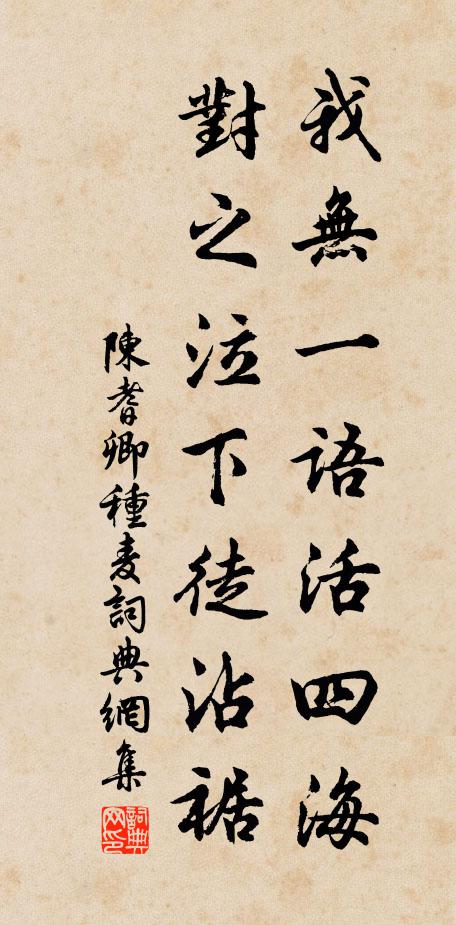 我無一語活四海
對之泣下徒沾裾
陳耆卿種麦詞典網集
詞典網印